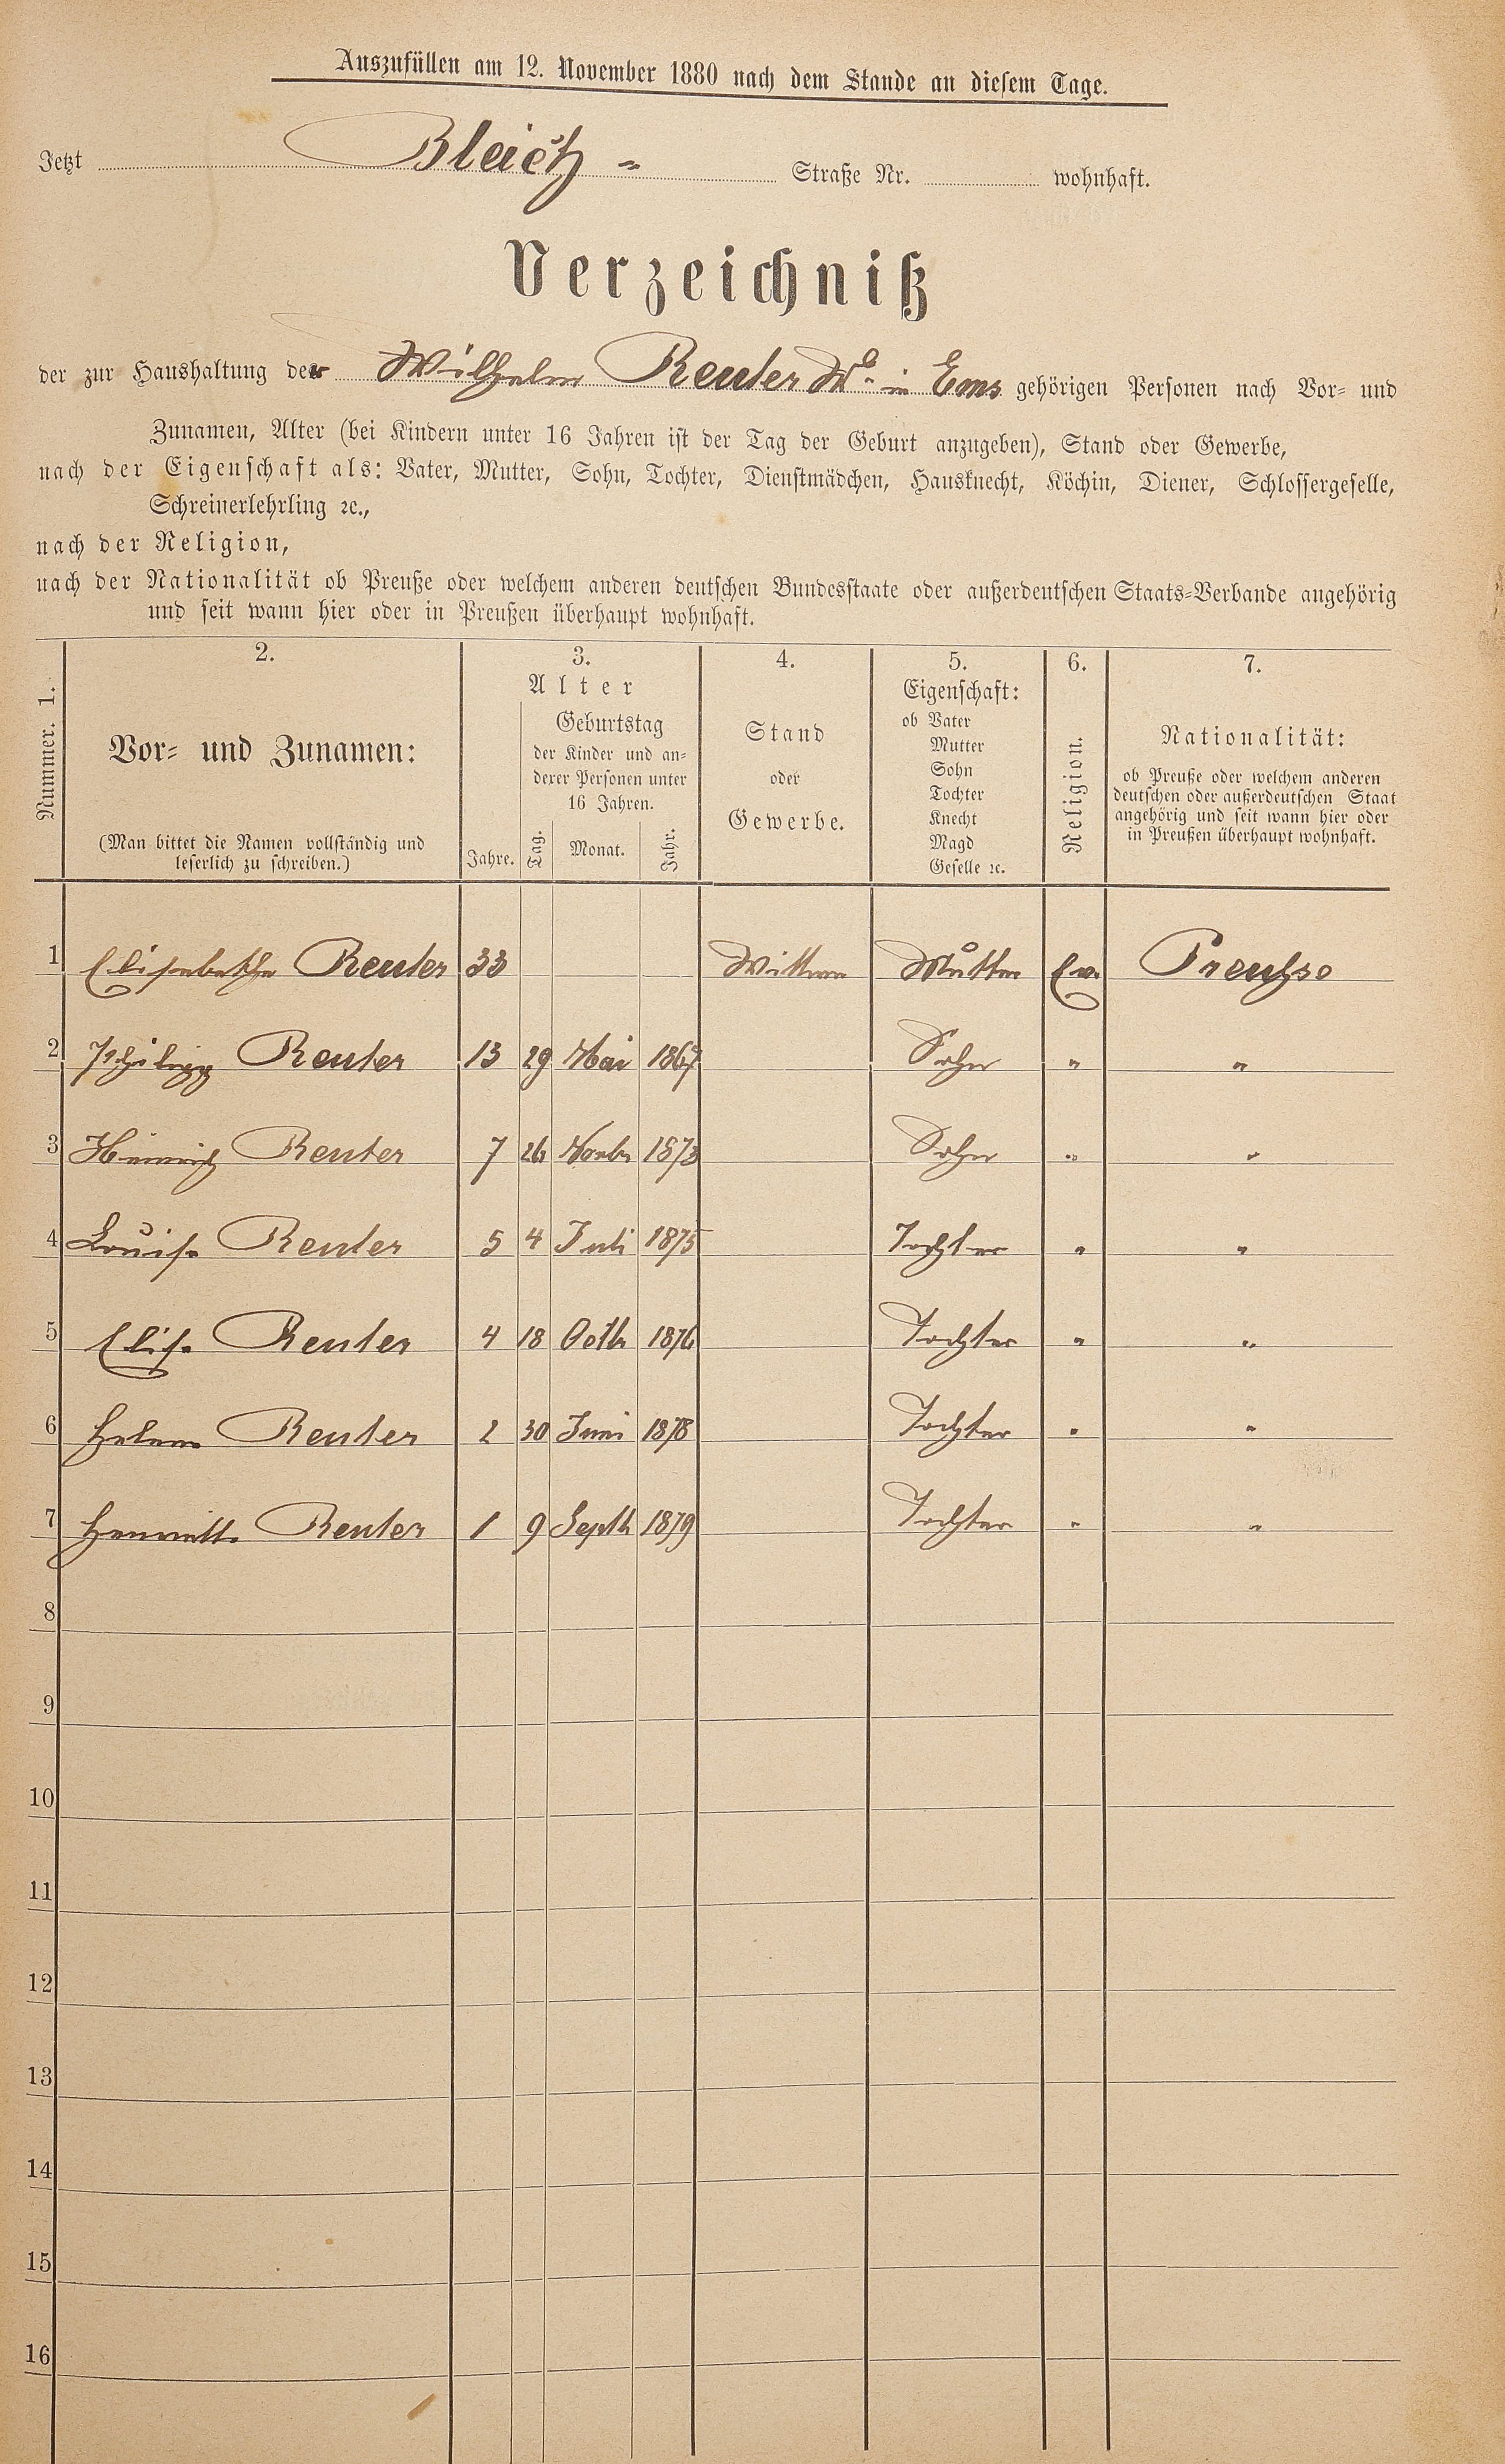 Auszufüllen am 12. November 1880 nach dem Stande an diesem Tage.
Jetzt Bleich - Straße Nr. wohnhaft.
Verzeichniß
der zur Haushaltung der Wilhelm Reuter We. in Ems gehörigen Personen nach Vor- und
Zunamen, Alter (bei Kindern unter 16 Jahren ist der Tag der Geburt anzugeben), Stand oder Gewerbe,
nach der Eigenschaft als: Vater, Mutter, Sohn, Tochter, Dienstmädchen, Hausknecht, Köchin, Diener, Schlossergeselle,
Schreinerlehrling ꝛc.,
nach der Religion,
nach der Nationalität ob Preuße oder welchem anderen deutschen Bundesstaate oder außerdeutschen Staats-Verbande angehörig
und seit wann hier oder in Preußen überhaupt wohnhaft.
Nummer. 1.
2.
Vor- und Zunamen:
(Man bittet die Namen vollständig und
leserlich zu schreiben.)
3.
Alter
Jahre.
Geburtstag
der Kinder und an-
derer Personen unter
16 Jahren.
Tag. Monat. Jahr.
4.
Stand
oder
Gewerbe.
5.
Eigenschaft:
ob Vater
Mutter
Sohn
Tochter
Knecht
Magd
Geselle ꝛc.
6.
Religion.
7.
Nationalität:
ob Preuße oder welchem anderen
deutschen oder außerdeutschen Staat
angehörig und seit wann hier oder
in Preußen überhaupt wohnhaft.
1 Elisabethe Reuter 33 Wittwe Mutter Ev. Preußse
2 Philipp Reuter 13 29 Mai 1867 Sohn " "
3 Heinrich Reuter 7 26 Novbr 1873 Sohn " "
4 Louise Reuter 5 4 Juli 1875 Tochter " "
5 Elise Reuter 4 18 Octbr 1876 Tochter " "
6 Helene Reuter 2 30 Juni 1878 Tochter " "
7 Henriette Reuter 1 9 Septb 1879 Tochter " "
8
9
10
11
12
13
14
15
16